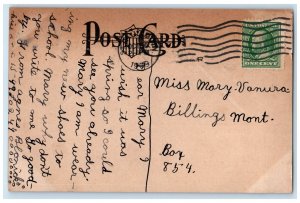 POST CARD
ear Mary I
wish it was
Spring so I could
see you already
Mary I am wear-
ing my new shoes to
school Mary why don't
you write to me So good-
by. From agnes
Miss Mary Vanura
Billings Mont.
Box
854.
ONE CENT